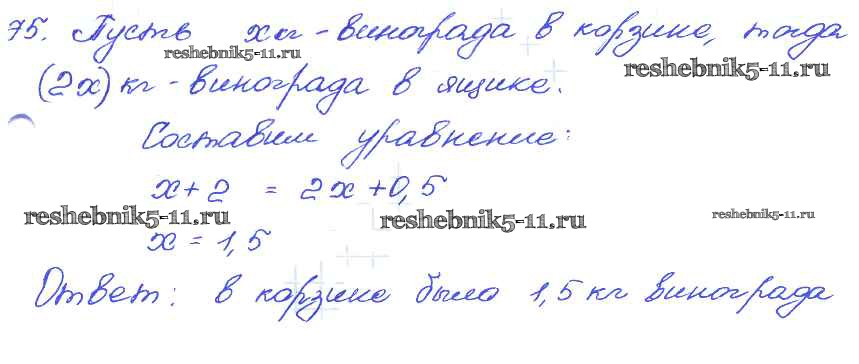 75. Пусть x кг - винограда в корзине, тогда
reshebnik5-11.ru
reshebnik5-11.ru
(2x) кг - винограда в ящике.
Составим уравнение:
x + 2 = 2x + 0,5
reshebnik5-11.ru
reshebnik5-11.ru
reshebnik5-11.ru
x = 1,5
Ответ: в корзине было 1,5 кг винограда